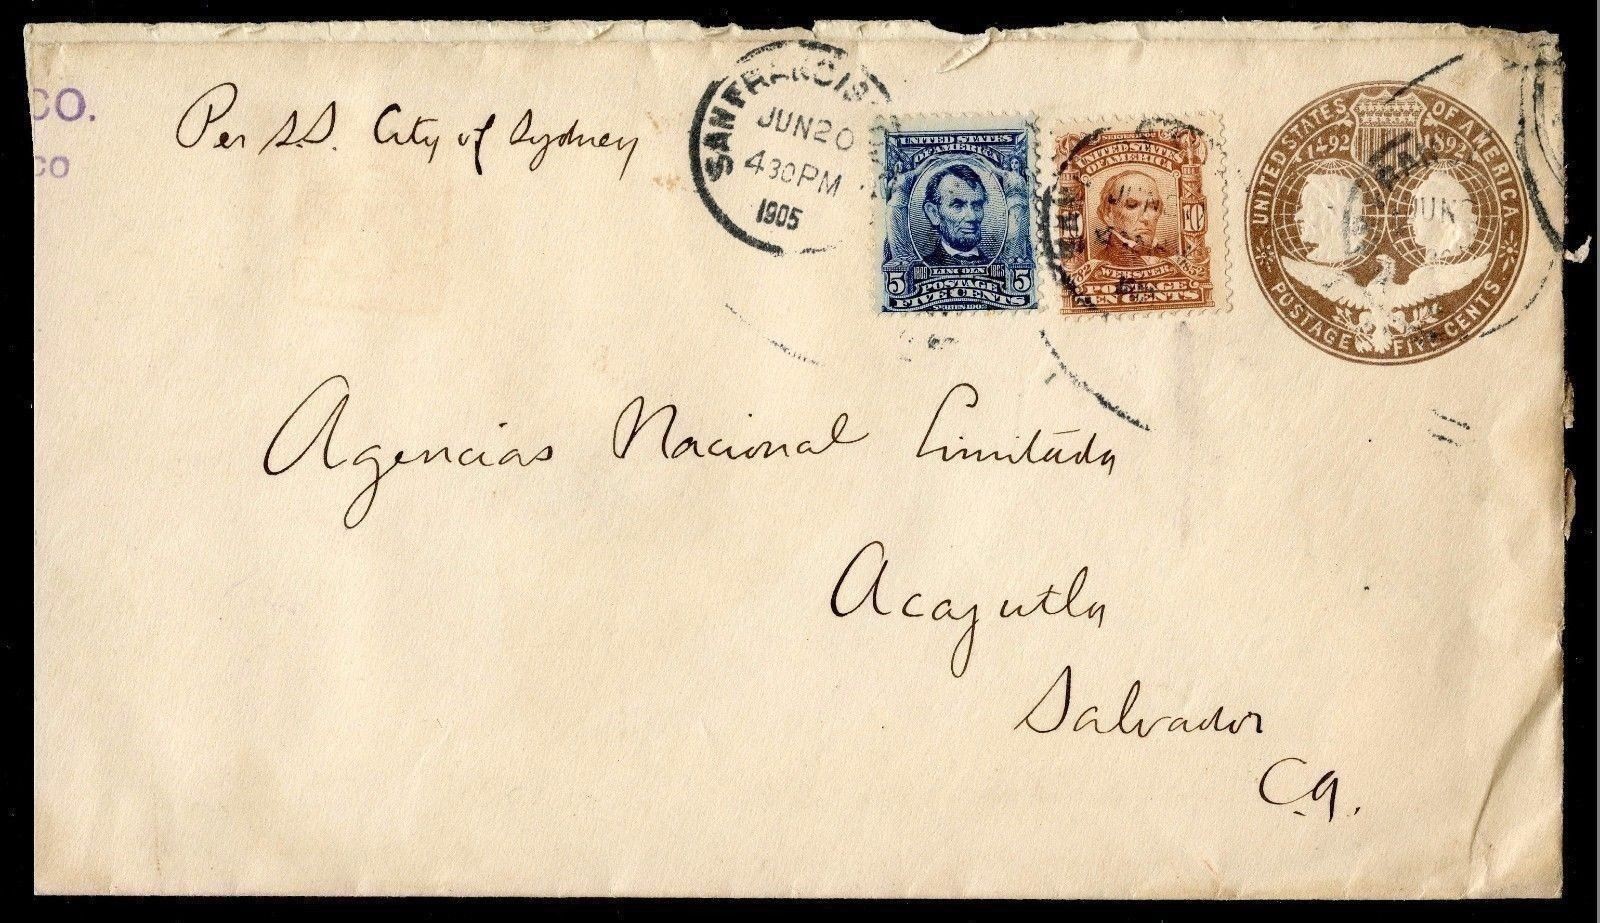 CO.
CO
Per S.S. City of Sydney
SAN FRANCIS
JUN 20
4 30 PM
1905
UNITED STATES
OF AMERICA
1809 LINCOLN 1865
5 POSTAGE 5
FIVE CENTS
SERIES 1902
UNITED STATES
OF AMERICA
JUN
10
WEBSTER
POSTAGE
TEN CENTS
UNITED STATES OF AMERICA
1492 1892
JUN
POSTAGE FIVE CENTS
Agencias Nacional Limitada
Acajutla
Salvador
C.A.